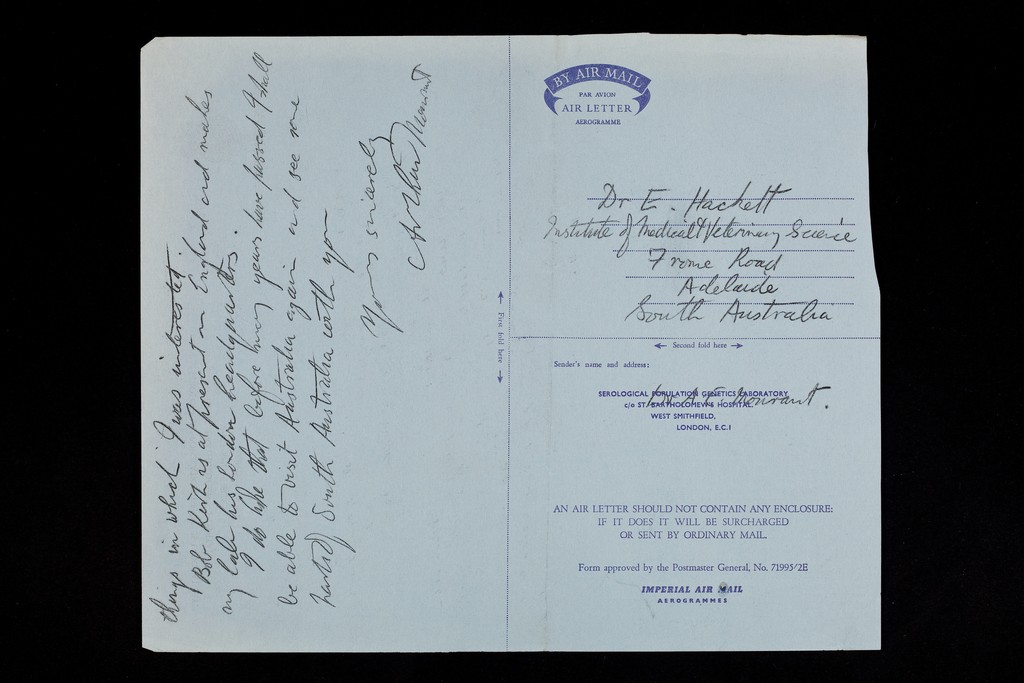 things in which I was interested.
Bob Kirk is at present in England and makes
my lab his London headquarters.
I do hope that before many years have passed I shall
be able to visit Australia again and see some
of South Australia with you
Yours sincerely
Arthur Mourant
First fold here
BY AIR MAIL
PAR AVION
AIR LETTER
AEROGRAMME
Dr E. Hackett
Institute of Medical & Veterinary Science
Frome Road
Adelaide
South Australia
Second fold here
Sender's name and address:
Dr A. E. Mourant.
SEROLOGICAL POPULATION GENETICS LABORATORY
c/o ST. BARTHOLOMEW'S HOSPITAL
WEST SMITHFIELD,
LONDON, E.C.1
AN AIR LETTER SHOULD NOT CONTAIN ANY ENCLOSURE:
IF IT DOES IT WILL BE SURCHARGED
OR SENT BY ORDINARY MAIL.
Form approved by the Postmaster General, No. 71995/2E
IMPERIAL AIR MAIL
AEROGRAMMES